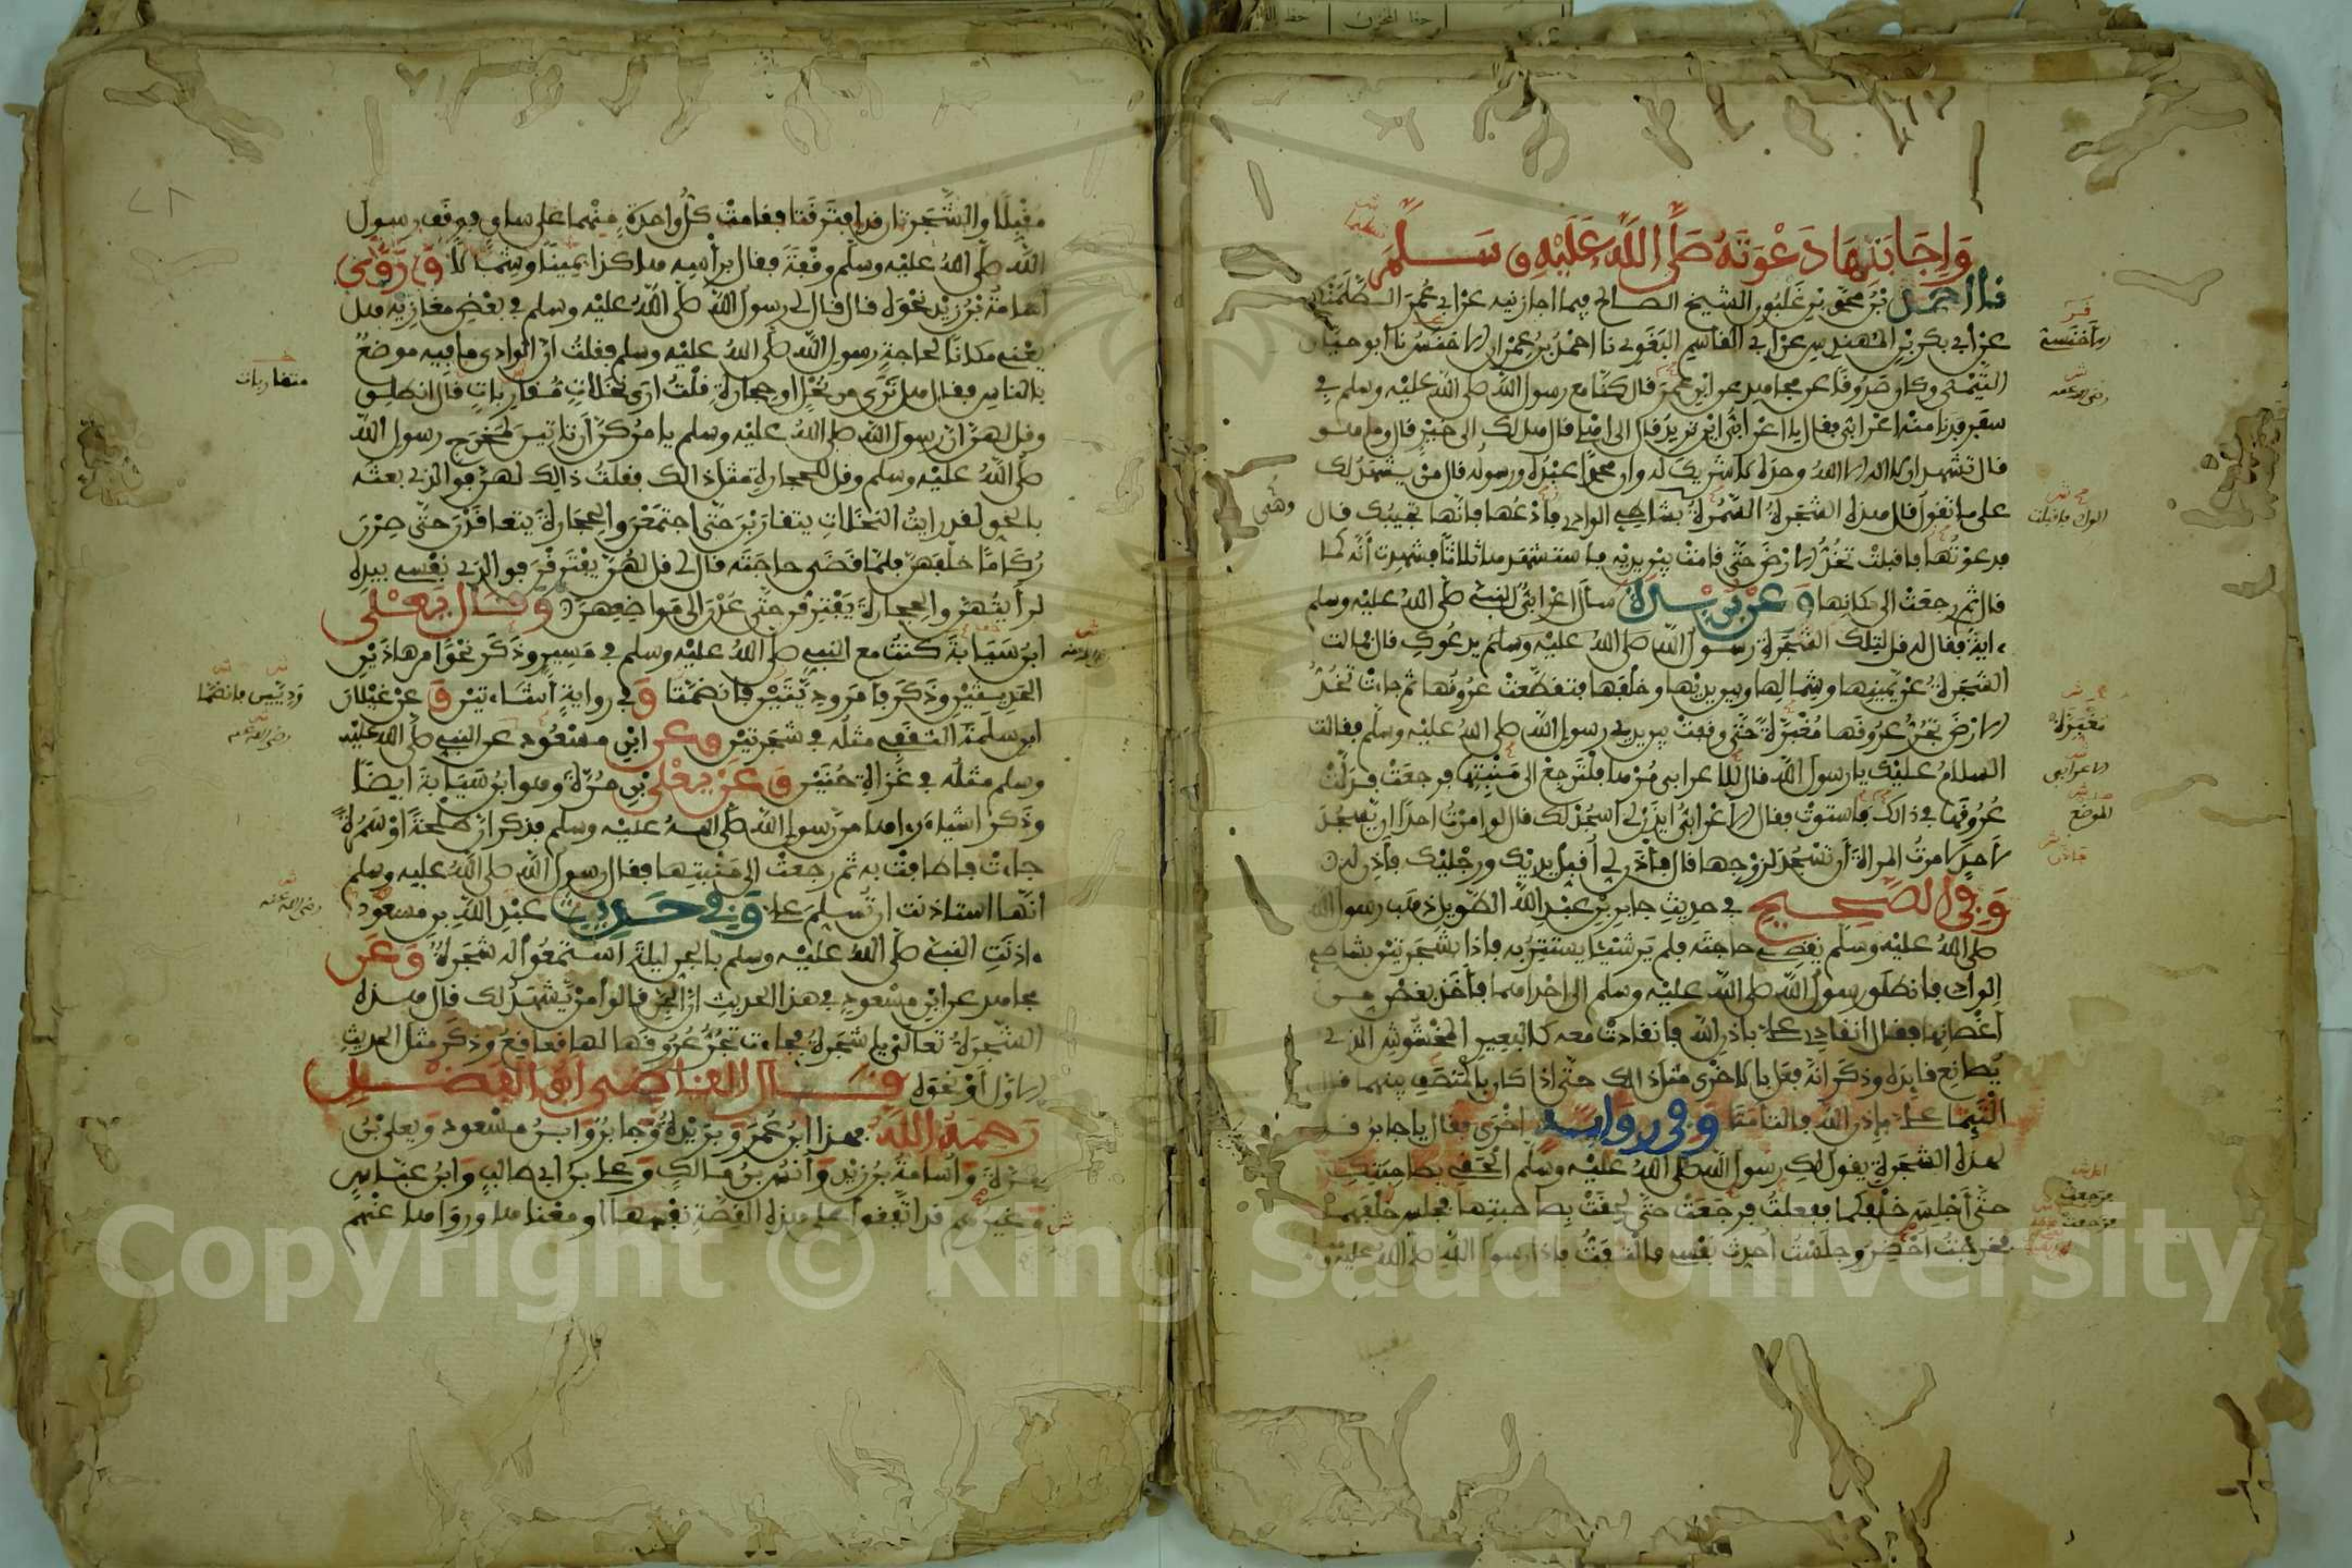 وَإِجَابَتِهَا دَعْوَتَهُ صَلَّى اللَّهُ عَلَيْهِ وَسَلَّمَ
نا احمد بن محمد بن غلبون الشيخ الصالح فيما اجازنيه عن ابي عمر الطلمنكي
عن ابي بكر بن المهندس عن ابي القاسم البغوي نا احمد بن عمران الاخنسي نا ابو حيان
التيمي وكان صدوقا عن مجاهد عن ابن عمر قال كنا مع رسول الله صلى الله عليه وسلم في
سفر فدنا منه اعرابي فقال يا اعرابي اين تريد قال الى اهلي قال هل لك الى خير قال وما هو
قال تشهد ان لا اله الا الله وحده لا شريك له وان محمدا عبده ورسوله قال من يشهد لك
على ما تقول قال هذه الشجرة السمرة بشاطي الوادي فادعها فانها تجيبك قال
فدعوتها فاقبلت تخد الارض حتى قامت بين يديه فاستشهدها ثلاثا فشهدت أنه كما
قال ثم رجعت الى مكانها وعن بريدة سال اعرابي النبي صلى الله عليه وسلم
ءاية فقال له قل لتلك الشجرة رسول الله صلى الله عليه وسلم يدعوك قال فمالت
الشجرة عن يمينها وشمالها وبين يديها وخلفها فتقطعت عروقها ثم جاءت تخد
الارض تجر عروقها مغبرة حتى وقفت بين يدي رسول الله صلى الله عليه وسلم فقالت
السلام عليك يا رسول الله قال الاعرابي مرها فلترجع الى منبتها فرجعت فدلت
عروقها في ذالك فاستوت فقال الاعرابي ايذن لي اسجد لك قال لو امرت احدا ان يسجد
لاحد لامرت المراة أن تسجد لزوجها قال فأذن لي أقبل يديك ورجليك فاذن له
وفي الصحيح في حديث جابر بن عبد الله الطويل ذهب رسول الله
صلى الله عليه وسلم يقضي حاجته فلم ير شيئا يستتر به فاذا بشجرتين بشاطي
الوادي فانطلق رسول الله صلى الله عليه وسلم الى احداهما فأخذ بغصن من
أغصانها فقال انقادي علي باذن الله فانقادت معه كالبعير المخشوش الذي
يصانع قايده وذكر انه فعل بالاخرى مثل ذالك حتى اذا كان بالمنصف بينهما قال
التئما علي بإذن الله فالتامتا وفي رواية اخرى فقال يا جابر قل
لهذه الشجرة يقول لك رسول الله صلى الله عليه وسلم الحقي بصاحبتك
حتى أجلس خلفكما ففعلت فرجعت حتى لحقت بصاحبتها فجلس خلفهما
فخرجت احضر وجلست احدث نفسي فالتفت فاذا رسول الله صلى الله عليه وسلم
الاخنسي
رضى الله عنه
مغبرة
الاعرابي
الموضع
مقبلا والشجرتان قد افترقتا فقامت كل واحدة منهما على ساق فوقف رسول
الله صلى الله عليه وسلم وقفة فقال برأسه هاكذا يمينا وشمالا وروى
أسامة بن زيد نحوه قال قال لي رسول الله صلى الله عليه وسلم في بعض مغازيه هل
يعني مكانا لحاجة رسول الله صلى الله عليه وسلم فقلت ان الوادي ما فيه موضع
بالناس فقال هل ترى من نخل او حجارة قلت ارى نخلات متقاربات قال انطلق
وقل لهن ان رسول الله صلى الله عليه وسلم يامركن أن تاتين لمخرج رسول الله
صلى الله عليه وسلم وقل للحجارة مثل ذالك فقلت ذالك لهن فوالذي بعثه
بالحق لقد رايت النخلات يتقاربن حتى اجتمعن والحجارة يتعاقدن حتى صرن
ركاما خلفهن فلما قضى حاجته قال لي قل لهن يفترقن فوالذي نفسي بيده
لرأيتهن والحجارة يفترقن حتى عدن الى مواضعهن وقال يعلى
ابن سيابة كنت مع النبي صلى الله عليه وسلم في مسير وذكر نحوا من هاذين
الحديثين وذكر فأمر وديتين فانضمتا وفي رواية أشاءتين وعن غيلان
ابن سلمة الثقفي مثله في شجرتين وعن ابن مسعود عن النبي صلى الله عليه
وسلم مثله في غزاة حنين وعن يعلى بن مرة وهو ابن سيابة ايضا
وذكر اشياء رءاها من رسول الله صلى الله عليه وسلم فذكر ان طلحة او سمرة
جاءت فاطافت به ثم رجعت الى منبتها فقال رسول الله صلى الله عليه وسلم
انها استاذنت ان تسلم علي وفي حديث عبد الله بن مسعود
ءاذنت النبي صلى الله عليه وسلم بالجن ليلة استمعوا له شجرة وعن
مجاهد عن ابن مسعود في هذا الحديث ان الجن قالوا من يشهد لك قال هذه
الشجرة تعالي يا شجرة فجاءت تجر عروقها لها قعاقع وذكر مثل الحديث
الاول أو نحوه قال القاضي أبو الفضل
رحمه الله فهذا ابن عمر وبريدة وجابر وابن مسعود ويعلى بن
مرة وأسامة بن زيد وأنس بن مالك وعلي بن ابي طالب وابن عباس
وغيرهم قد اتفقوا على هذه القصة نفسها او معناها ورواها عنهم
متقاربات
وديتين فانضمتا
رضى الله عنه
رضى الله عنه
Copyright © King Saud University